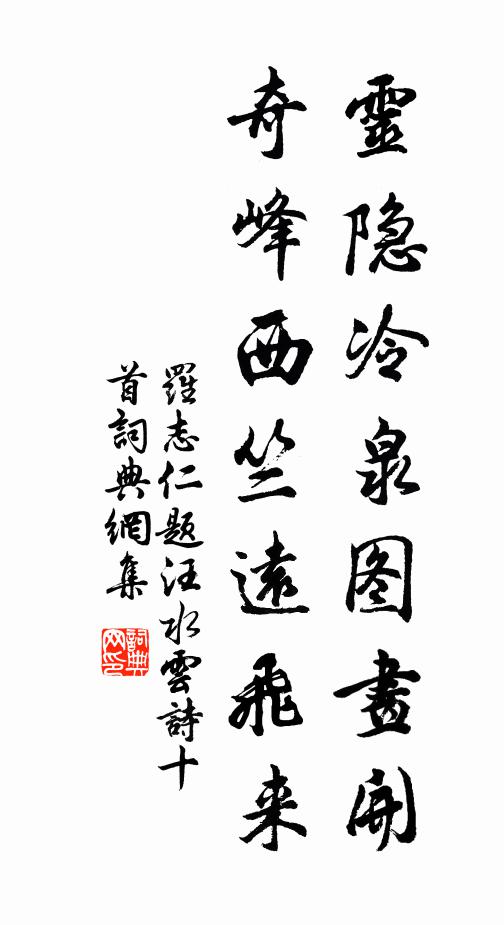 靈隐冷泉图畫開
奇峰西竺遠飛来
羅志仁题汪水雲詩十
首詞典網集
詞典网印